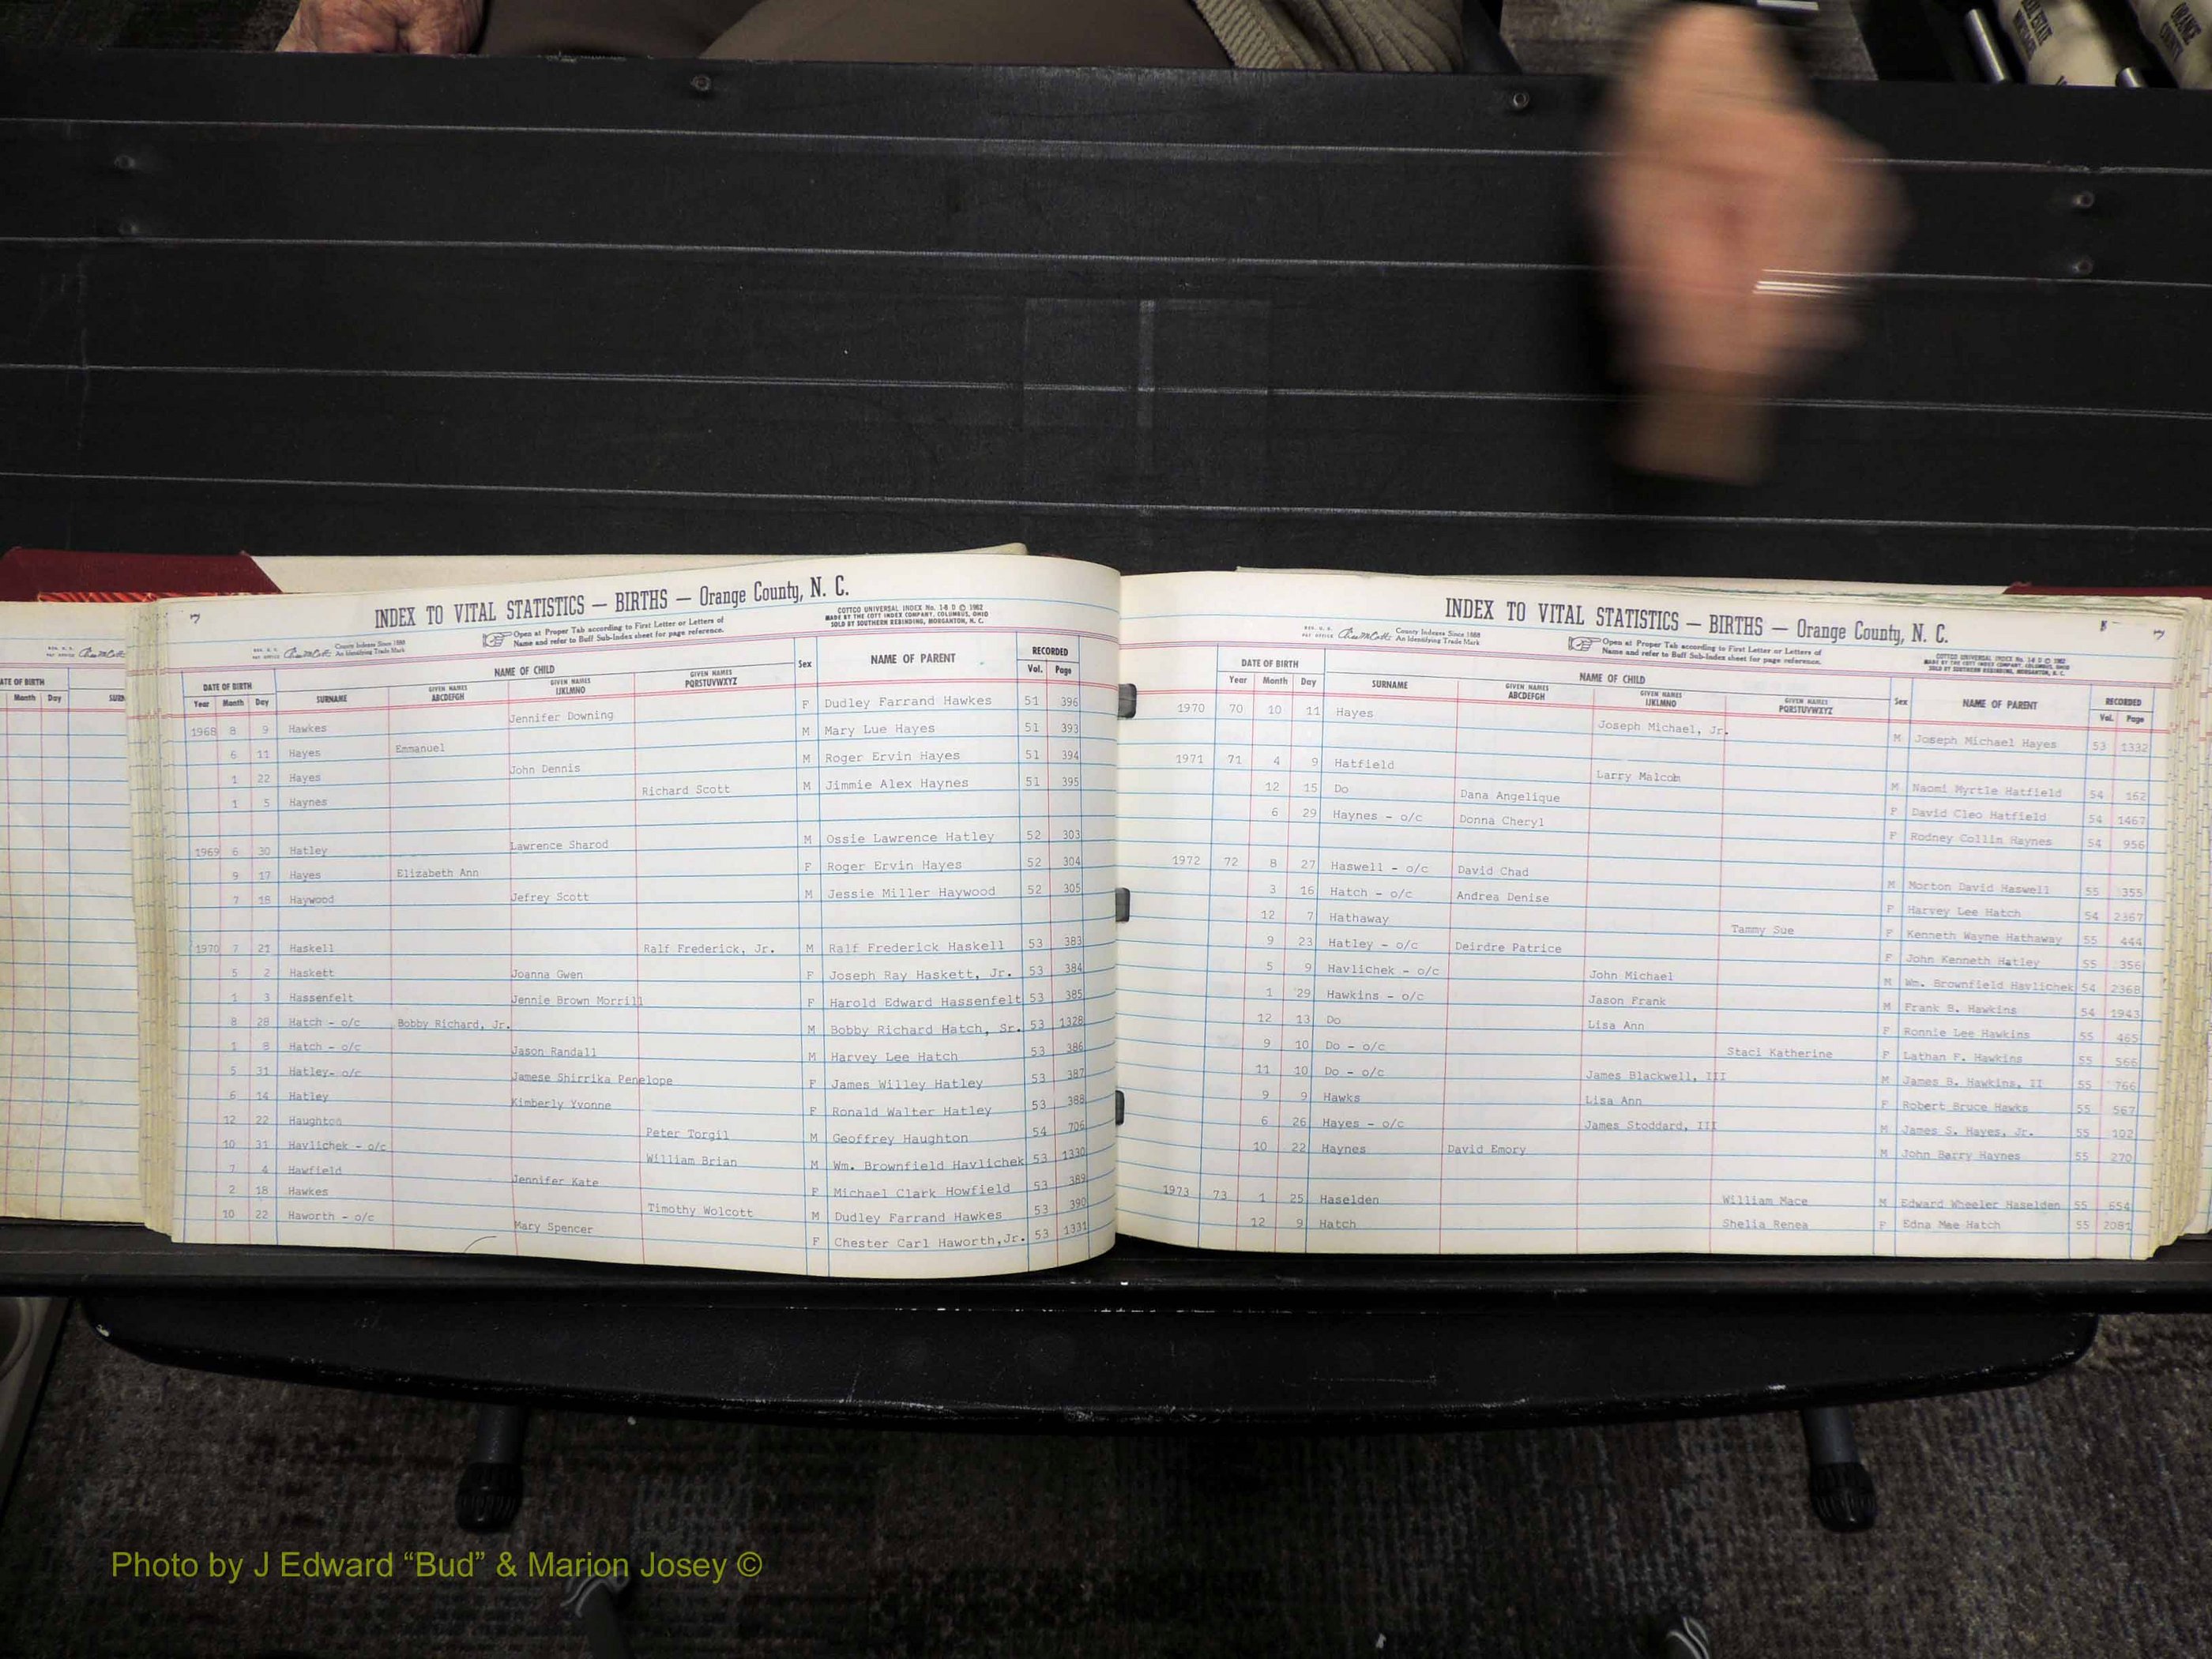 INDEX TO VITAL STATISTICS — BIRTHS — Orange County, N. C.
County Indexes Since 1888
An Identifying Trade Mark
Open at Proper Tab according to First Letter or Letters of
Name and refer to Buff Sub-Index sheet for page reference.
COTTCO UNIVERSAL INDEX No. 1-6 D © 1962
MADE BY THE COTT INDEX COMPANY, COLUMBUS, OHIO
SOLD BY SOUTHERN REBINDING, MORGANTON, N. C.
DATE OF BIRTH NAME OF CHILD Sex NAME OF PARENT RECORDED
Year Month Day SURNAME GIVEN NAMES ABCDEFGH GIVEN NAMES IJKLMNO GIVEN NAMES PQRSTUVWXYZ Vol. Page
1968 8 9 Hawkes Jennifer Downing F Dudley Farrand Hawkes 51 396
6 11 Hayes Emmanuel M Mary Lue Hayes 51 393
1 22 Hayes John Dennis M Roger Ervin Hayes 51 394
1 5 Haynes Richard Scott M Jimmie Alex Haynes 51 395
1969 6 30 Hatley Lawrence Sharod M Ossie Lawrence Hatley 52 303
9 17 Hayes Elizabeth Ann F Roger Ervin Hayes 52 304
7 18 Haywood Jefrey Scott M Jessie Miller Haywood 52 305
1970 7 21 Haskell Ralf Frederick, Jr. M Ralf Frederick Haskell 53 383
5 2 Haskett Joanna Gwen F Joseph Ray Haskett, Jr. 53 384
1 3 Hassenfelt Jennie Brown Morrill F Harold Edward Hassenfelt 53 385
8 28 Hatch - o/c Bobby Richard, Jr. M Bobby Richard Hatch, Sr. 53 1328
1 8 Hatch - o/c Jason Randall M Harvey Lee Hatch 53 386
5 31 Hatley- o/c Jamese Shirrika Penelope F James Willey Hatley 53 387
6 14 Hatley Kimberly Yvonne F Ronald Walter Hatley 53 388
12 22 Haughton Peter Torgil M Geoffrey Haughton 54 706
10 31 Havlichek - o/c William Brian M Wm. Brownfield Havlichek 53 1330
7 4 Hawfield Jennifer Kate F Michael Clark Howfield 53 389
2 18 Hawkes Timothy Wolcott M Dudley Farrand Hawkes 53 390
10 22 Haworth - o/c Mary Spencer F Chester Carl Haworth,Jr. 53 1331
INDEX TO VITAL STATISTICS — BIRTHS — Orange County, N. C.
County Indexes Since 1888
An Identifying Trade Mark
Open at Proper Tab according to First Letter or Letters of
Name and refer to Buff Sub-Index sheet for page reference.
COTTCO UNIVERSAL INDEX No. 1-6 D © 1962
MADE BY THE COTT INDEX COMPANY, COLUMBUS, OHIO
SOLD BY SOUTHERN REBINDING, MORGANTON, N. C.
DATE OF BIRTH NAME OF CHILD Sex NAME OF PARENT RECORDED
Year Month Day SURNAME GIVEN NAMES ABCDEFGH GIVEN NAMES IJKLMNO GIVEN NAMES PQRSTUVWXYZ Vol. Page
1970 70 10 11 Hayes Joseph Michael, Jr. M Joseph Michael Hayes 53 1332
1971 71 4 9 Hatfield Larry Malcom M Naomi Myrtle Hatfield 54 162
12 15 Do Dana Angelique F David Cleo Hatfield 54 1467
6 29 Haynes - o/c Donna Cheryl F Rodney Collin Haynes 54 956
1972 72 8 27 Haswell - o/c David Chad M Morton David Haswell 55 355
3 16 Hatch - o/c Andrea Denise F Harvey Lee Hatch 54 2367
12 7 Hathaway Tammy Sue F Kenneth Wayne Hathaway 55 444
9 23 Hatley - o/c Deirdre Patrice F John Kenneth Hatley 55 356
5 9 Havlichek - o/c John Michael M Wm. Brownfield Havlichek 54 2368
1 29 Hawkins - o/c Jason Frank M Frank B. Hawkins 54 1943
12 13 Do Lisa Ann F Ronnie Lee Hawkins 55 465
9 10 Do - o/c Staci Katherine F Lathan F. Hawkins 55 566
11 10 Do - o/c James Blackwell, III M James B. Hawkins, II 55 766
9 9 Hawks Lisa Ann F Robert Bruce Hawks 55 567
6 26 Hayes - o/c James Stoddard, III M James S. Hayes, Jr. 55 102
10 22 Haynes David Emory M John Barry Haynes 55 270
1973 73 1 25 Haselden William Mace M Edward Wheeler Haselden 55 654
12 9 Hatch Shelia Renea F Edna Mae Hatch 55 2081
Photo by J Edward “Bud” & Marion Josey ©